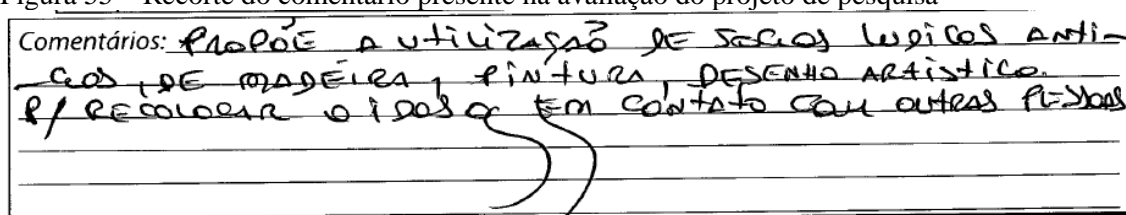 Figura 33 – Recorte do comentário presente na avaliação do projeto de pesquisa
Comentários: PROPÕE A UTILIZAÇÃO DE JOGOS LUDICOS ANTI-
GOS, DE MADEIRA, PINTURA, DESENHO ARTÍSTICO.
P/ RECOLOCAR O IDOSO EM CONTATO COM OUTRAS PESSOAS